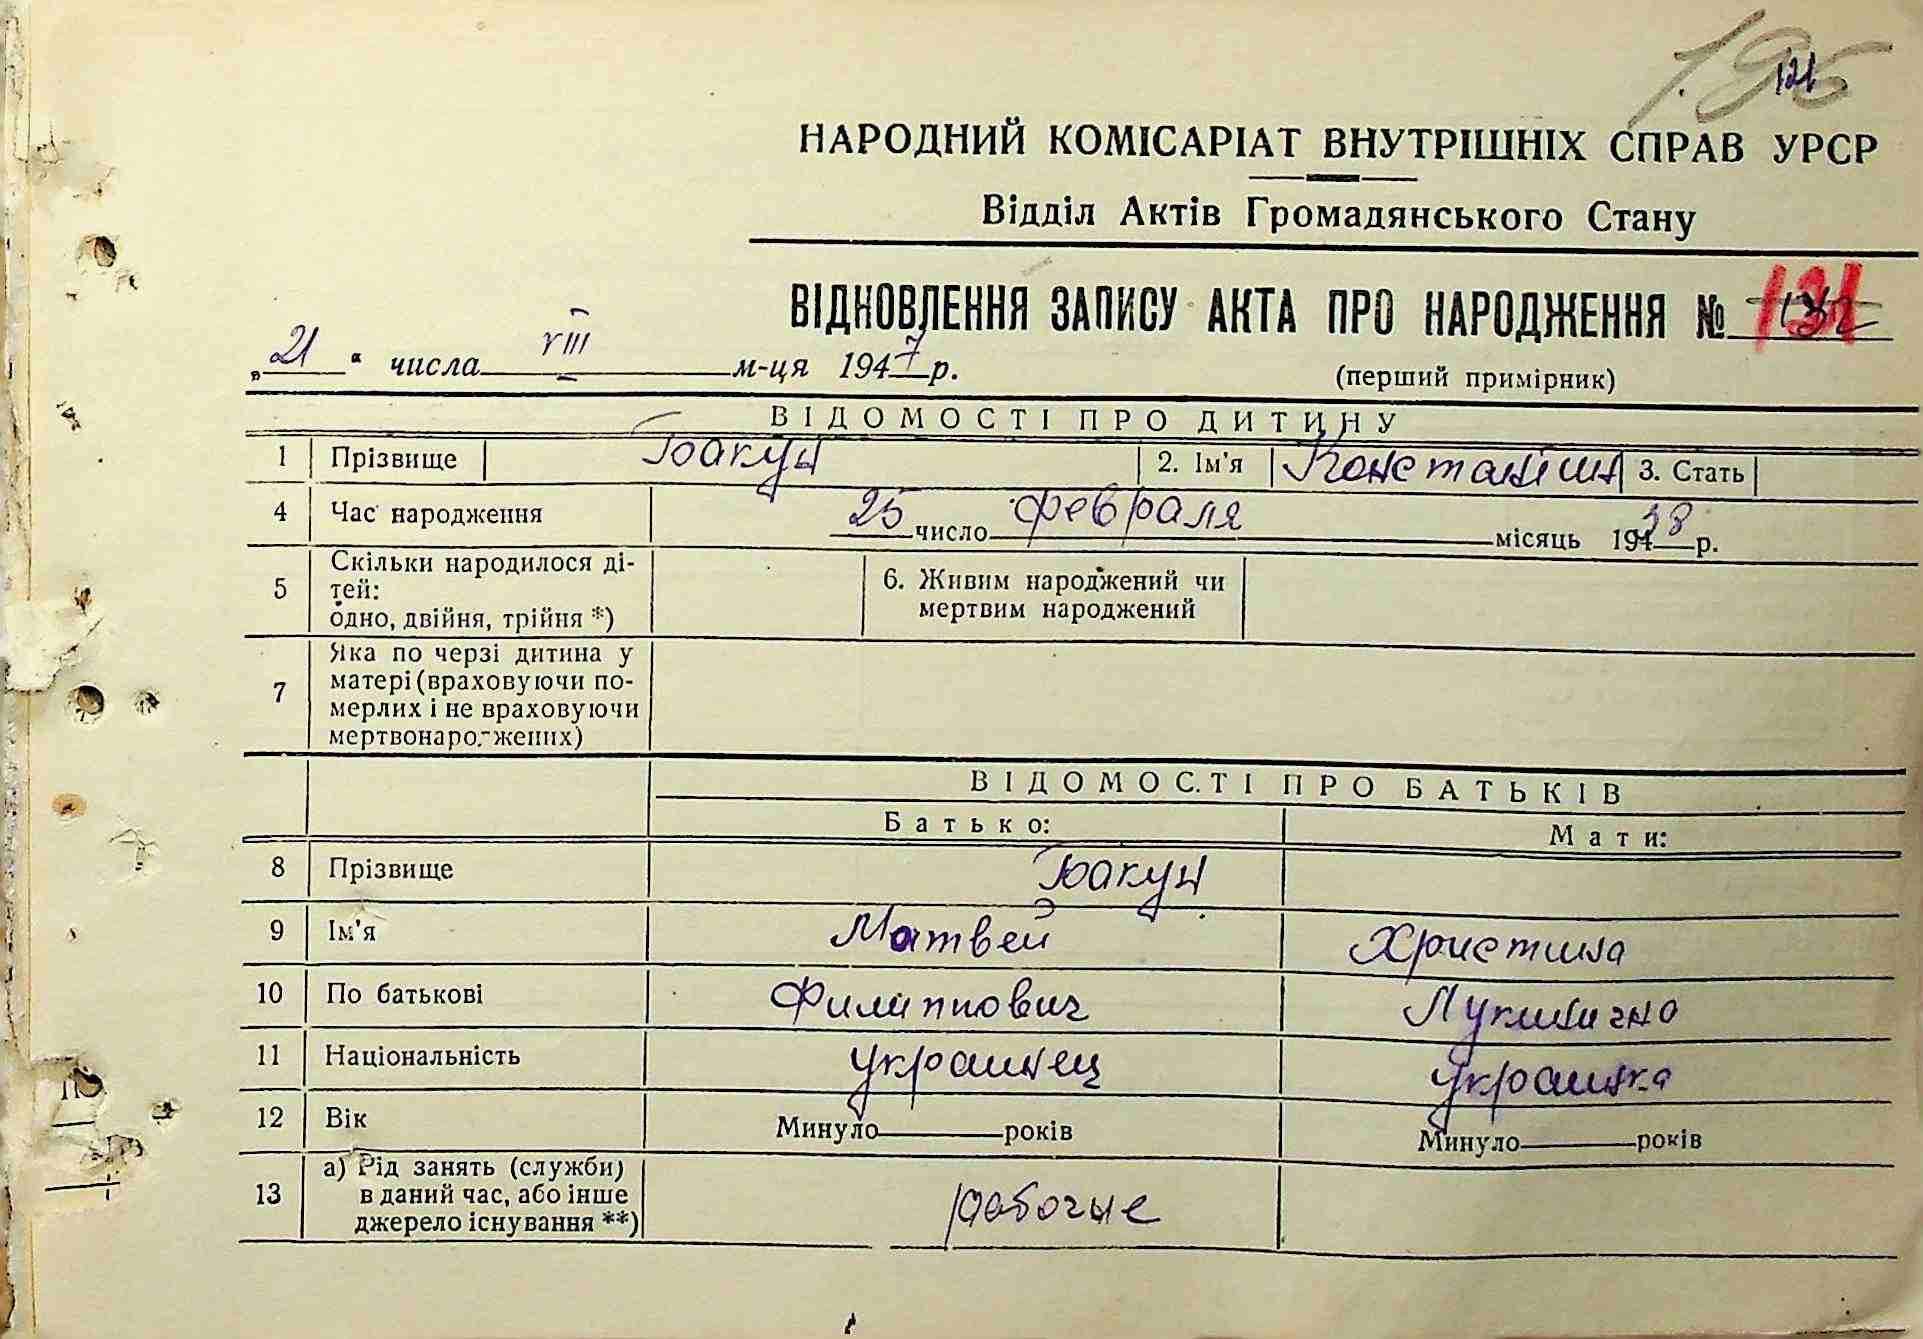 195
121
НАРОДНИЙ КОМІСАРІАТ ВНУТРІШНІХ СПРАВ УРСР
Відділ Актів Громадянського Стану
ВІДНОВЛЕННЯ ЗАПИСУ АКТА ПРО НАРОДЖЕННЯ № 131
„21“ числа VIII м-ця 1947 р.
(перший примірник)
ВІДОМОСТІ ПРО ДИТИНУ
1 Прізвище Бакун 2. Ім'я Константин 3. Стать
4 Час народження 25 число февраля місяць 1938 р.
5 Скільки народилося ді-
тей:
одно, двійня, трійня *)
6. Живим народжений чи
мертвим народжений
7 Яка по черзі дитина у
матері (враховуючи по-
мерлих і не враховуючи
мертвонароджених)
ВІДОМОСТІ ПРО БАТЬКІВ
Батько: Мати:
8 Прізвище Бакун
9 Ім'я Матвей Христина
10 По батькові Филиппович Лукинична
11 Національність украинец украинка
12 Вік Минуло років Минуло років
13 а) Рід занять (служби)
в даний час, або інше
джерело існування **)
рабочие